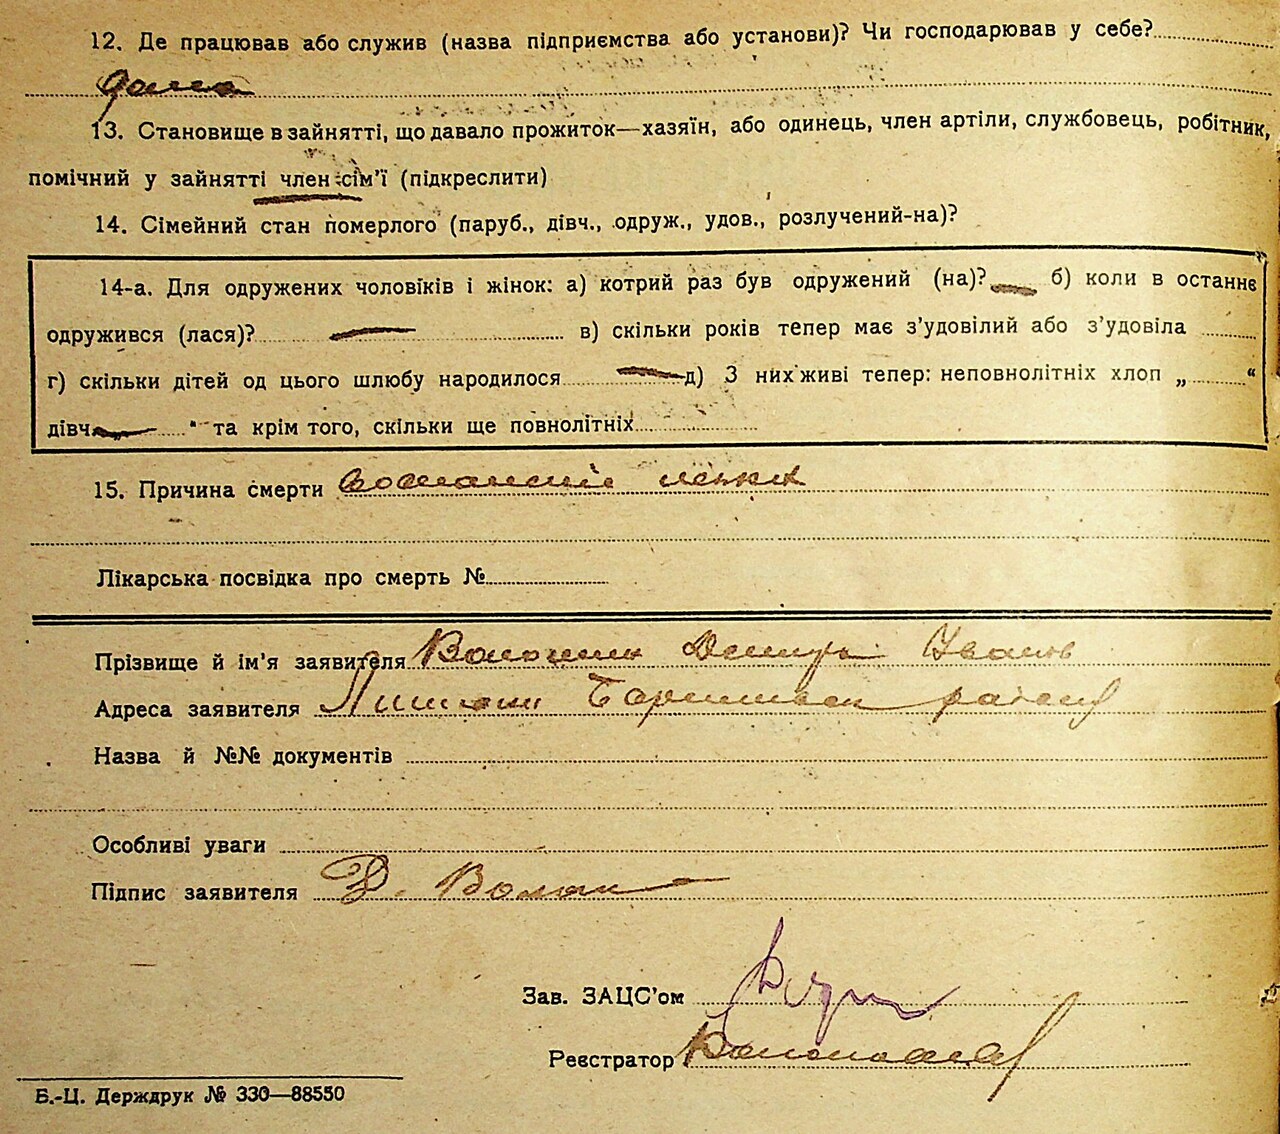 12. Де працював або служив (назва підприємства або установи)? Чи господарював у себе?
дома
13. Становище в зайнятті, що давало прожиток—хазяїн, або одинець, член артіли, службовець, робітник,
помічний у зайнятті член сім'ї (підкреслити)
14. Сімейний стан померлого (паруб., дівч., одруж., удов., розлучений-на)?
14-а. Для одружених чоловіків і жінок: а) котрий раз був одружений (на)? — б) коли в останнє
одружився (лася)? — в) скільки років тепер має з'удовілий або з'удовіла
г) скільки дітей од цього шлюбу народилося — д) З них живі тепер: неповнолітніх хлоп „ “
дівч. — " та крім того, скільки ще повнолітніх
15. Причина смерти
Лікарська посвідка про смерть №
Прізвище й ім'я заявителя Волошин
Адреса заявителя
Назва й №№ документів
Особливі уваги
Підпис заявителя Д.
Зав. ЗАЦС'ом
Реєстратор
Б.-Ц. Держдрук № 330—88550